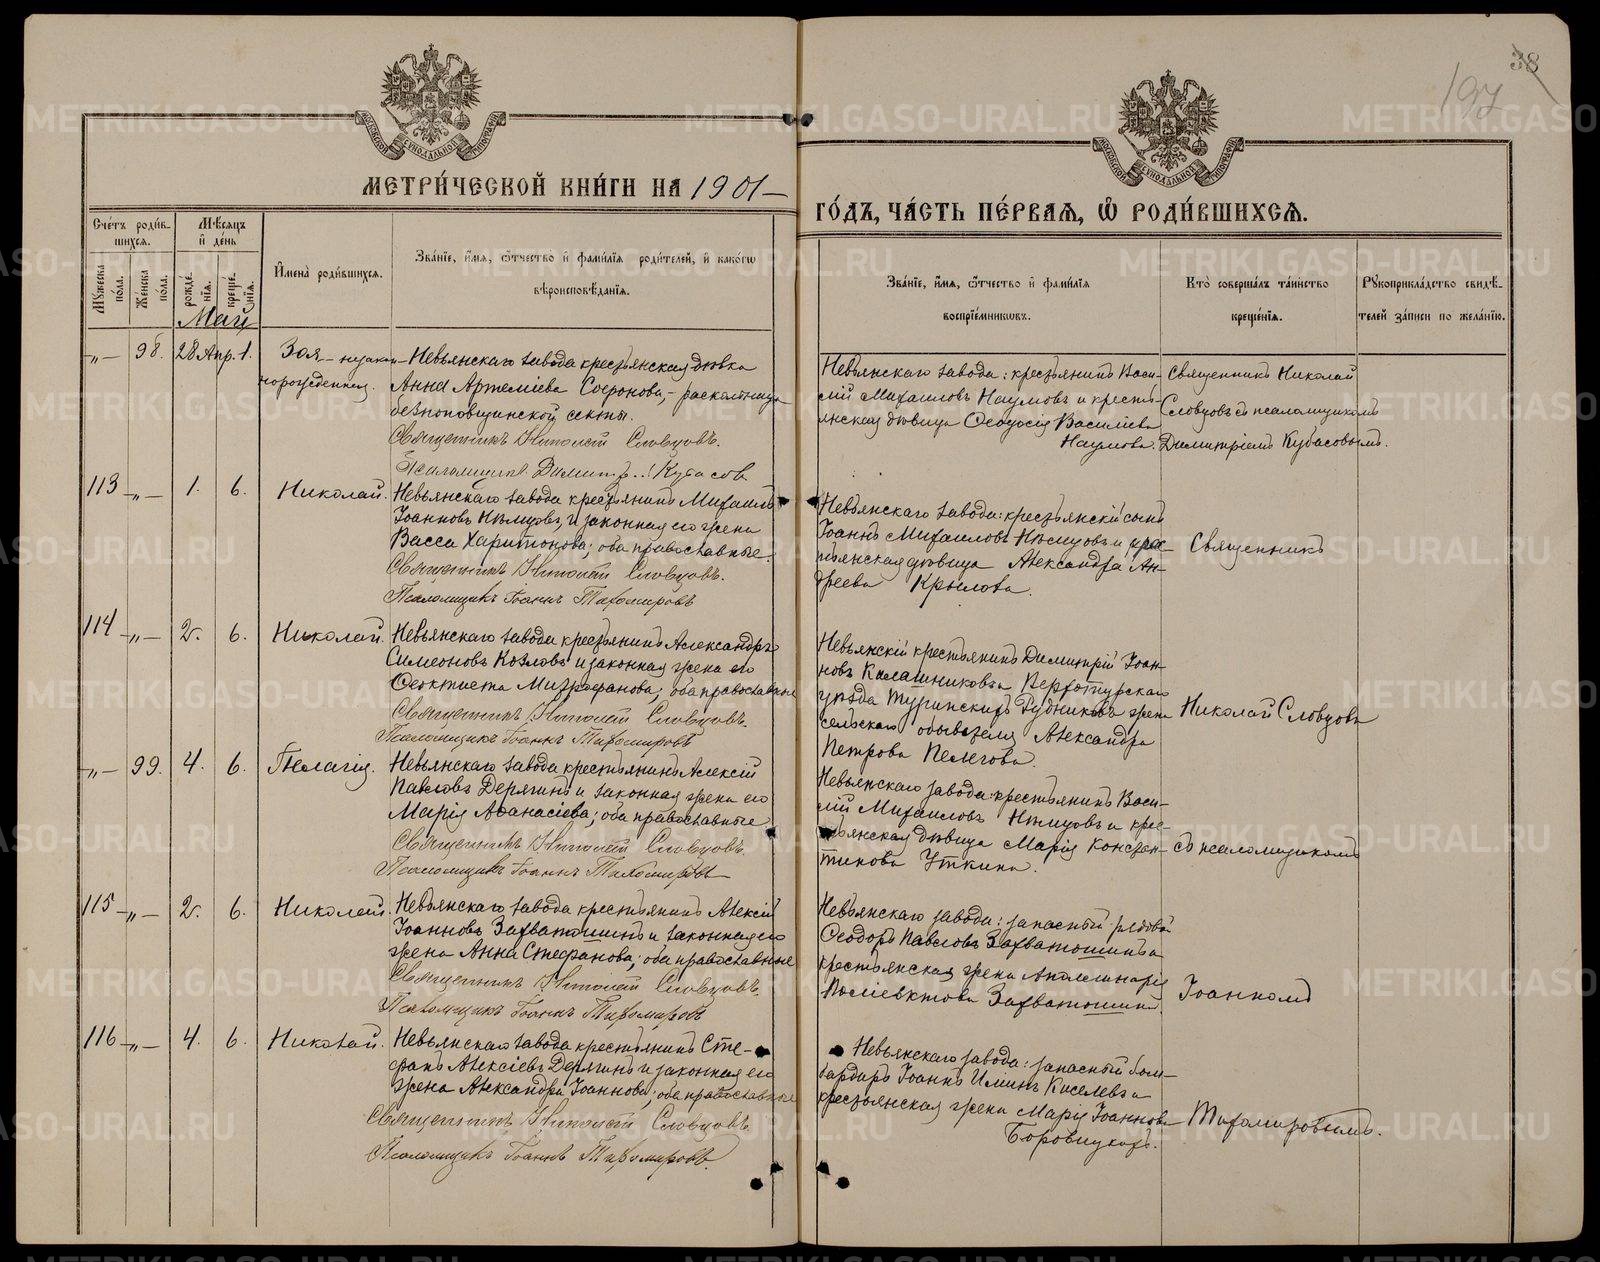 38
197
МЕТРИ́ЧЕСКОЙ КНИ́ГИ НА 1901
ГО́ДЪ, ЧА́СТЬ ПЕ́РВАЯ, Ѽ РОДИ́ВШИХСЯ.
Сче́тъ роди́в-
шихся.
Мѣ́сяцъ
и҆ де́нь
Му́жеска по́ла.
Же́нска по́ла.
рожде́нїя.
креще́нїя.
И҆мена̀ роди́вшихся.
Зва́нїе, и҆́мя, ѿ́чество и҆ фами́лїя роди́телей, и҆ како́гѡ
вѣроисповѣ́данїя.
Зва́нїе, и҆́мя, ѿ́чество и҆ фами́лїя
воспрїе́мникѡвъ.
Кто̀ соверша́лъ та́инство
креще́нїя.
Рꙋкоприкла́дство свидѣ́-
телей за́писи по жела́нїю.
Май
-"- 98. 28 Апр. 1. Зоя - незакон-
норожденная.
Невьянскаго завода крестьянская дѣвка
Анна Артемиева Софронова, - раскольница
безпоповщинской секты.
Священникъ Николай Словцовъ.
Псаломщикъ Димитр.. Кубасовъ
Невьянскаго завода: крестьянинъ Васи-
лій Михаиловъ Наумовъ и кресть-
янская дѣвица Ѳеодосія Василіева
Наумова.
Священникъ Николай
Словцовъ съ псаломщикомъ
Димитріемъ Кубасовымъ.
113 -"- 1. 6. Николай.
Невьянскаго завода крестьянинъ Михаилъ
Іоанновъ Нѣмцовъ, и законная его жена
Васса Харитонова; оба православные.
Священникъ Николай Словцовъ.
Псаломщикъ Іоаннъ Тихомировъ
Невьянскаго завода: крестьянскій сынъ
Іоаннъ Михаиловъ Нѣмцовъ и крес-
тьянская дѣвица Александра Ан-
дреева Крылова.
Священникъ
114 -"- 2. 6. Николай.
Невьянскаго завода крестьянинъ Александръ
Симеоновъ Козловъ и законная жена его
Ѳеоктиста Митрофанова; оба православные
Священникъ Николай Словцовъ.
Псаломщикъ Іоаннъ Тихомировъ
Невьянскій крестьянинъ Димитрій Іоан-
новъ Калашниковъ и Верхотурскаго
уѣзда Туринскихъ Рудниковъ жена
сельскаго обывателя Александра
Петрова Пелегова.
Николай Словцовъ
-"- 99. 4. 6. Пелагія.
Невьянскаго завода крестьянинъ Алексій
Павловъ Дерягинъ и законная жена его
Марія Аѳанасіева; оба православные
Священникъ Николай Словцовъ.
Псаломщикъ Іоаннъ Тихомировъ
Невьянскаго завода: крестьянинъ Васи-
лій Михаиловъ Нѣмцовъ и крес-
тьянская дѣвица Марія Констан-
тинова Уткина.
съ псаломщикомъ
115 -"- 2. 6. Николай.
Невьянскаго завода крестьянинъ Алексій
Іоанновъ Захватошинъ и законная его
жена Анна Стефанова; оба православные
Священникъ Николай Словцовъ.
Псаломщикъ Іоаннъ Тихомировъ
Невьянскаго завода: запасный рядовой
Ѳеодоръ Павловъ Захватошинъ и
крестьянская жена Аполлинарія
Поліевктова Захватошина.
Іоанномъ
116 -"- 4. 6. Николай.
Невьянскаго завода крестьянинъ Сте-
фанъ Алексіевъ Дерягинъ и законная его
жена Александра Іоаннова; оба православные
Священникъ Николай Словцовъ.
Псаломщикъ Іоаннъ Тихомировъ.
Невьянскаго завода: запасный бом-
бардиръ Іоаннъ Киселевъ и
крестьянская жена Марія Іоаннова
Тихомировымъ.
METRIKI.GASO-URAL.RU